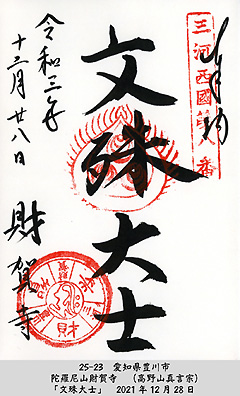 奉拝
三河西國第八番
文殊大士
令和三年
十二月廿八日
財賀寺
財
25-23 愛知県豊川市
陀羅尼山財賀寺 (高野山真言宗)
「文殊大士」 2021年12月28日